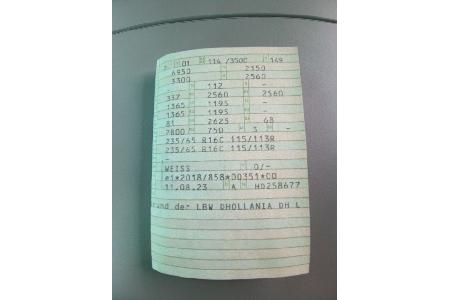 01 114 /3500 149
6950 2350
3300 2560
- 112 -
337 2560 2560
1365 1195 -
1365 1195 -
81 2625 68
2800 750 3 -
235/65 R16C 115/113R
235/65 R16C 115/113R
-
WEISS 0/-
e1*2018/858*00351*00
11.08.23 A HD258677
rund der LBW DHOLLANIA DH L